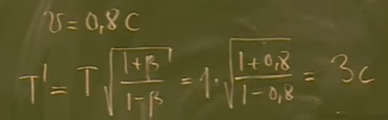 υ = 0,8 c
T' = T √((1+β)/(1-β)) = 1· √((1+0,8)/(1-0,8)) = 3c